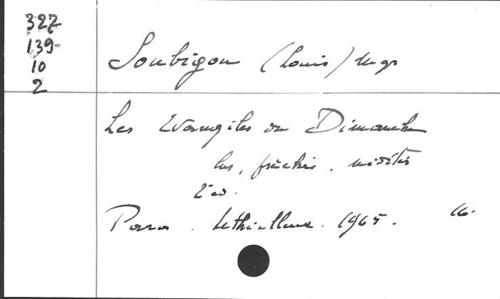 327
139
10
2
Soubigou (Louis) Mgr
Les Evangiles du Dimanche
lus, prêchés, médités
2 ed.
Paris. Lethielleux. 1965. 16.